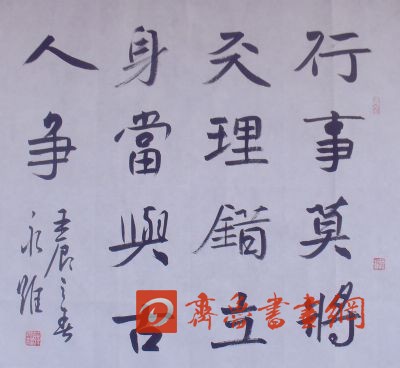 行事莫將
天理錯立
身當與古
人争
壬辰之春
永雖
齊魯書畫網